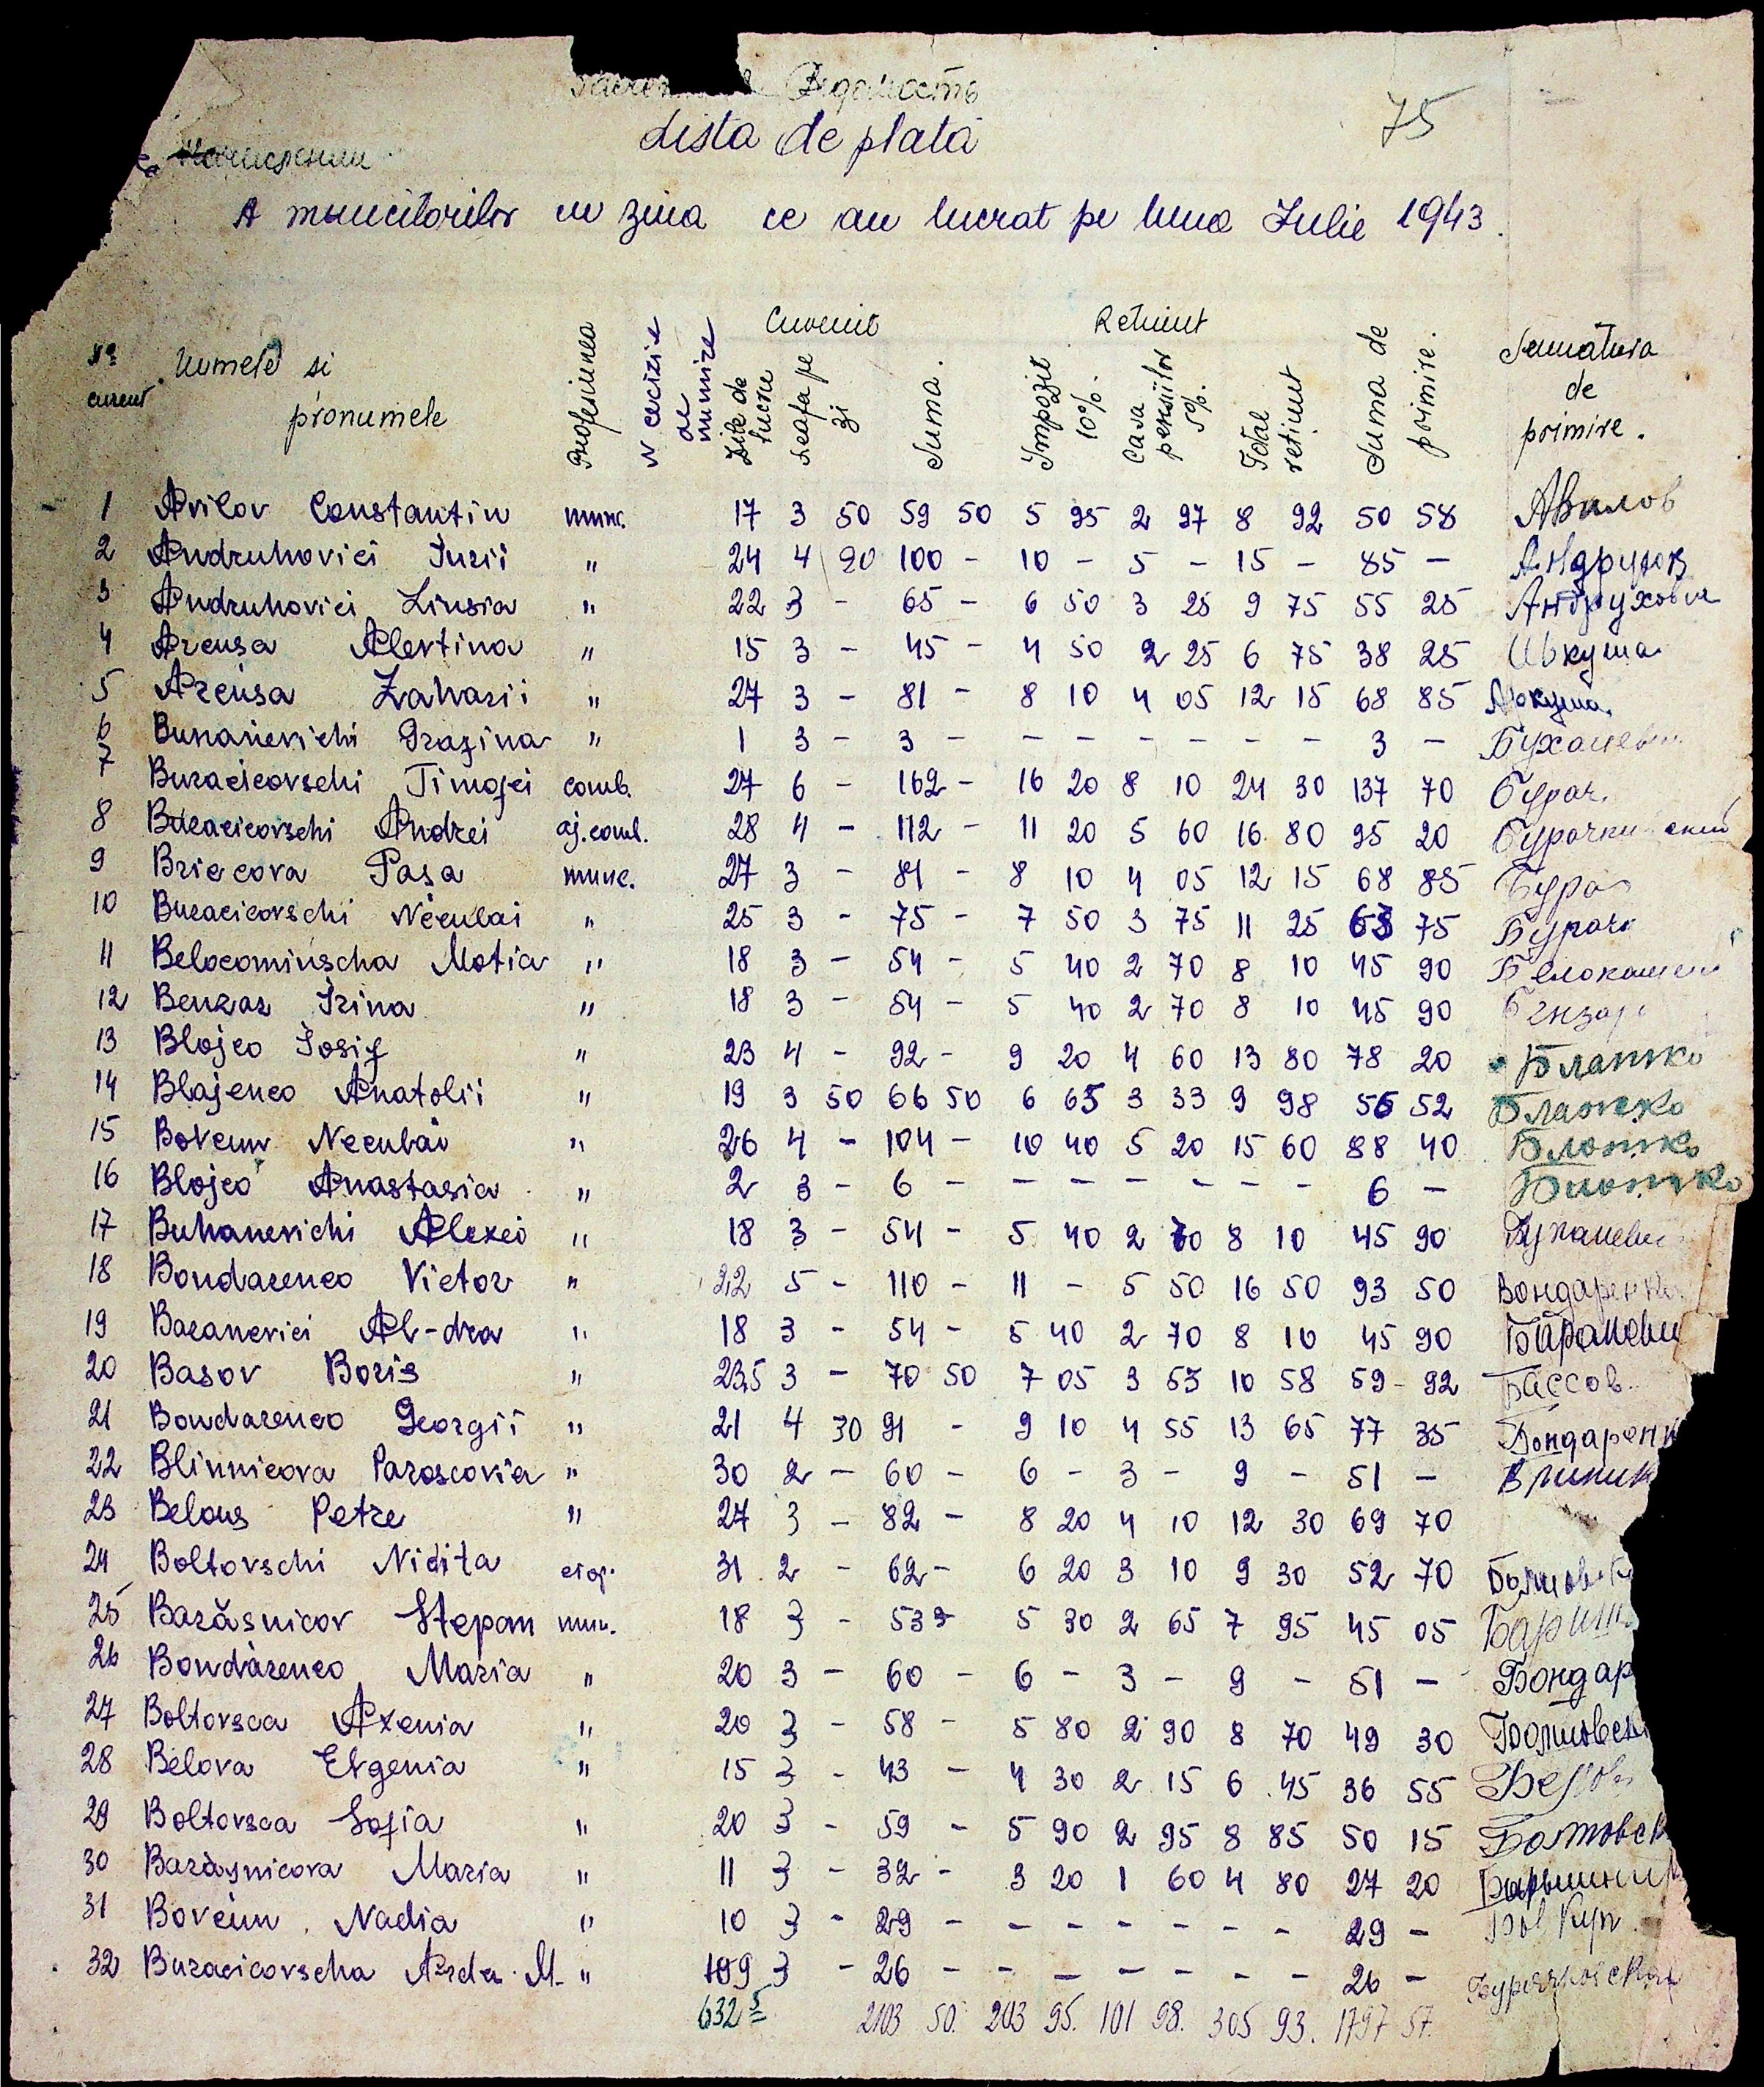 Ведомость
Lista de plata
75
A muncitorilor cu ziua ce au lucrat pe luna Iulie 1943.
Nº curent
Numele si pronumele
Profesiunea
N decizie de numire
Cuvenit
Zile de lucru
Leafa pe zi
Suma.
Retinut
Impozit 10%.
Casa pensiilor 5%.
Total retinut
Suma de primire.
Semnatura de primire.
1 Avilov Constantin munc. 17 3 50 59 50 5 95 2 97 8 92 50 58 Авилов
2 Andruhovici Iurii " 24 4 20 100 - 10 - 5 - 15 - 85 -
3 Andruhovici Liusia " 22 3 - 65 - 6 50 3 25 9 75 55 25 Андрухович
4 Arcusa Alevtina " 15 3 - 45 - 4 50 2 25 6 75 38 25
5 Arcusa Zaharii " 27 3 - 81 - 8 10 4 05 12 15 68 85
6 Buhanevichi Grazina " 1 3 - 3 - - - - - - - 3 - Буханеви
7 Buracicovschi Timofei comb. 27 6 - 162 - 16 20 8 10 24 30 137 70 Бурач.
8 Buracicovschi Andrei aj. comb. 28 4 - 112 - 11 20 5 60 16 80 95 20
9 Briecova Pasa munc. 27 3 - 81 - 8 10 4 05 12 15 68 85
10 Buracicovschi Neculai " 25 3 - 75 - 7 50 3 75 11 25 63 75 Бурачк
11 Belocominscha Motia " 18 3 - 54 - 5 40 2 70 8 10 45 90
12 Benzar Irina " 18 3 - 54 - 5 40 2 70 8 10 45 90 Бензар
13 Blojco Iosif " 23 4 - 92 - 9 20 4 60 13 80 78 20
14 Blajenco Anatolii " 19 3 50 66 50 6 65 3 33 9 98 56 52
15 Bovcun Neculai " 26 4 - 104 - 10 40 5 20 15 60 88 40
16 Blojco Anastasia " 2 3 - 6 - - - - - - - 6 -
17 Buhanevichi Alexei " 18 3 - 54 - 5 40 2 70 8 10 45 90 Буханеви
18 Bondarenco Victor " 22 5 - 110 - 11 - 5 50 16 50 93 50 Бондаренко
19 Baranevici Al-dra " 18 3 - 54 - 5 40 2 70 8 10 45 90 Бараневи
20 Basov Boris " 23,5 3 - 70 50 7 05 3 53 10 58 59 - 92 Бассов.
21 Bondarenco Georgii " 21 4 30 91 - 9 10 4 55 13 65 77 35 Бондаренк
22 Blinnicova Paroscovia " 30 2 - 60 - 6 - 3 - 9 - 51 -
23 Belous Petre " 27 3 - 82 - 8 20 4 10 12 30 69 70
24 Boltovschi Nichita 31 2 - 62 - 6 20 3 10 9 30 52 70
25 Barăsnicov Stepan mun. 18 3 - 53 - 5 30 2 65 7 95 45 05
26 Bondarenco Maria " 20 3 - 60 - 6 - 3 - 9 - 51 - Бондар
27 Boltovsca Axenia " 20 3 - 58 - 5 80 2 90 8 70 49 30
28 Belova Evgenia " 15 3 - 43 - 4 30 2 15 6 45 36 55 Белов
29 Boltovsca Sofia " 20 3 - 59 - 5 90 2 95 8 85 50 15 Болтовск
30 Barăsnicova Maria " 11 3 - 32 - 3 20 1 60 4 80 27 20 Барышник
31 Bovcun Nadia " 10 3 - 29 - - - - - - - 29 -
32 Buracicovscha Arda M. " 9 3 - 26 - - - - - - - 26 -
632 5 2103 50. 203 95. 101 98. 305 93. 1797 57.